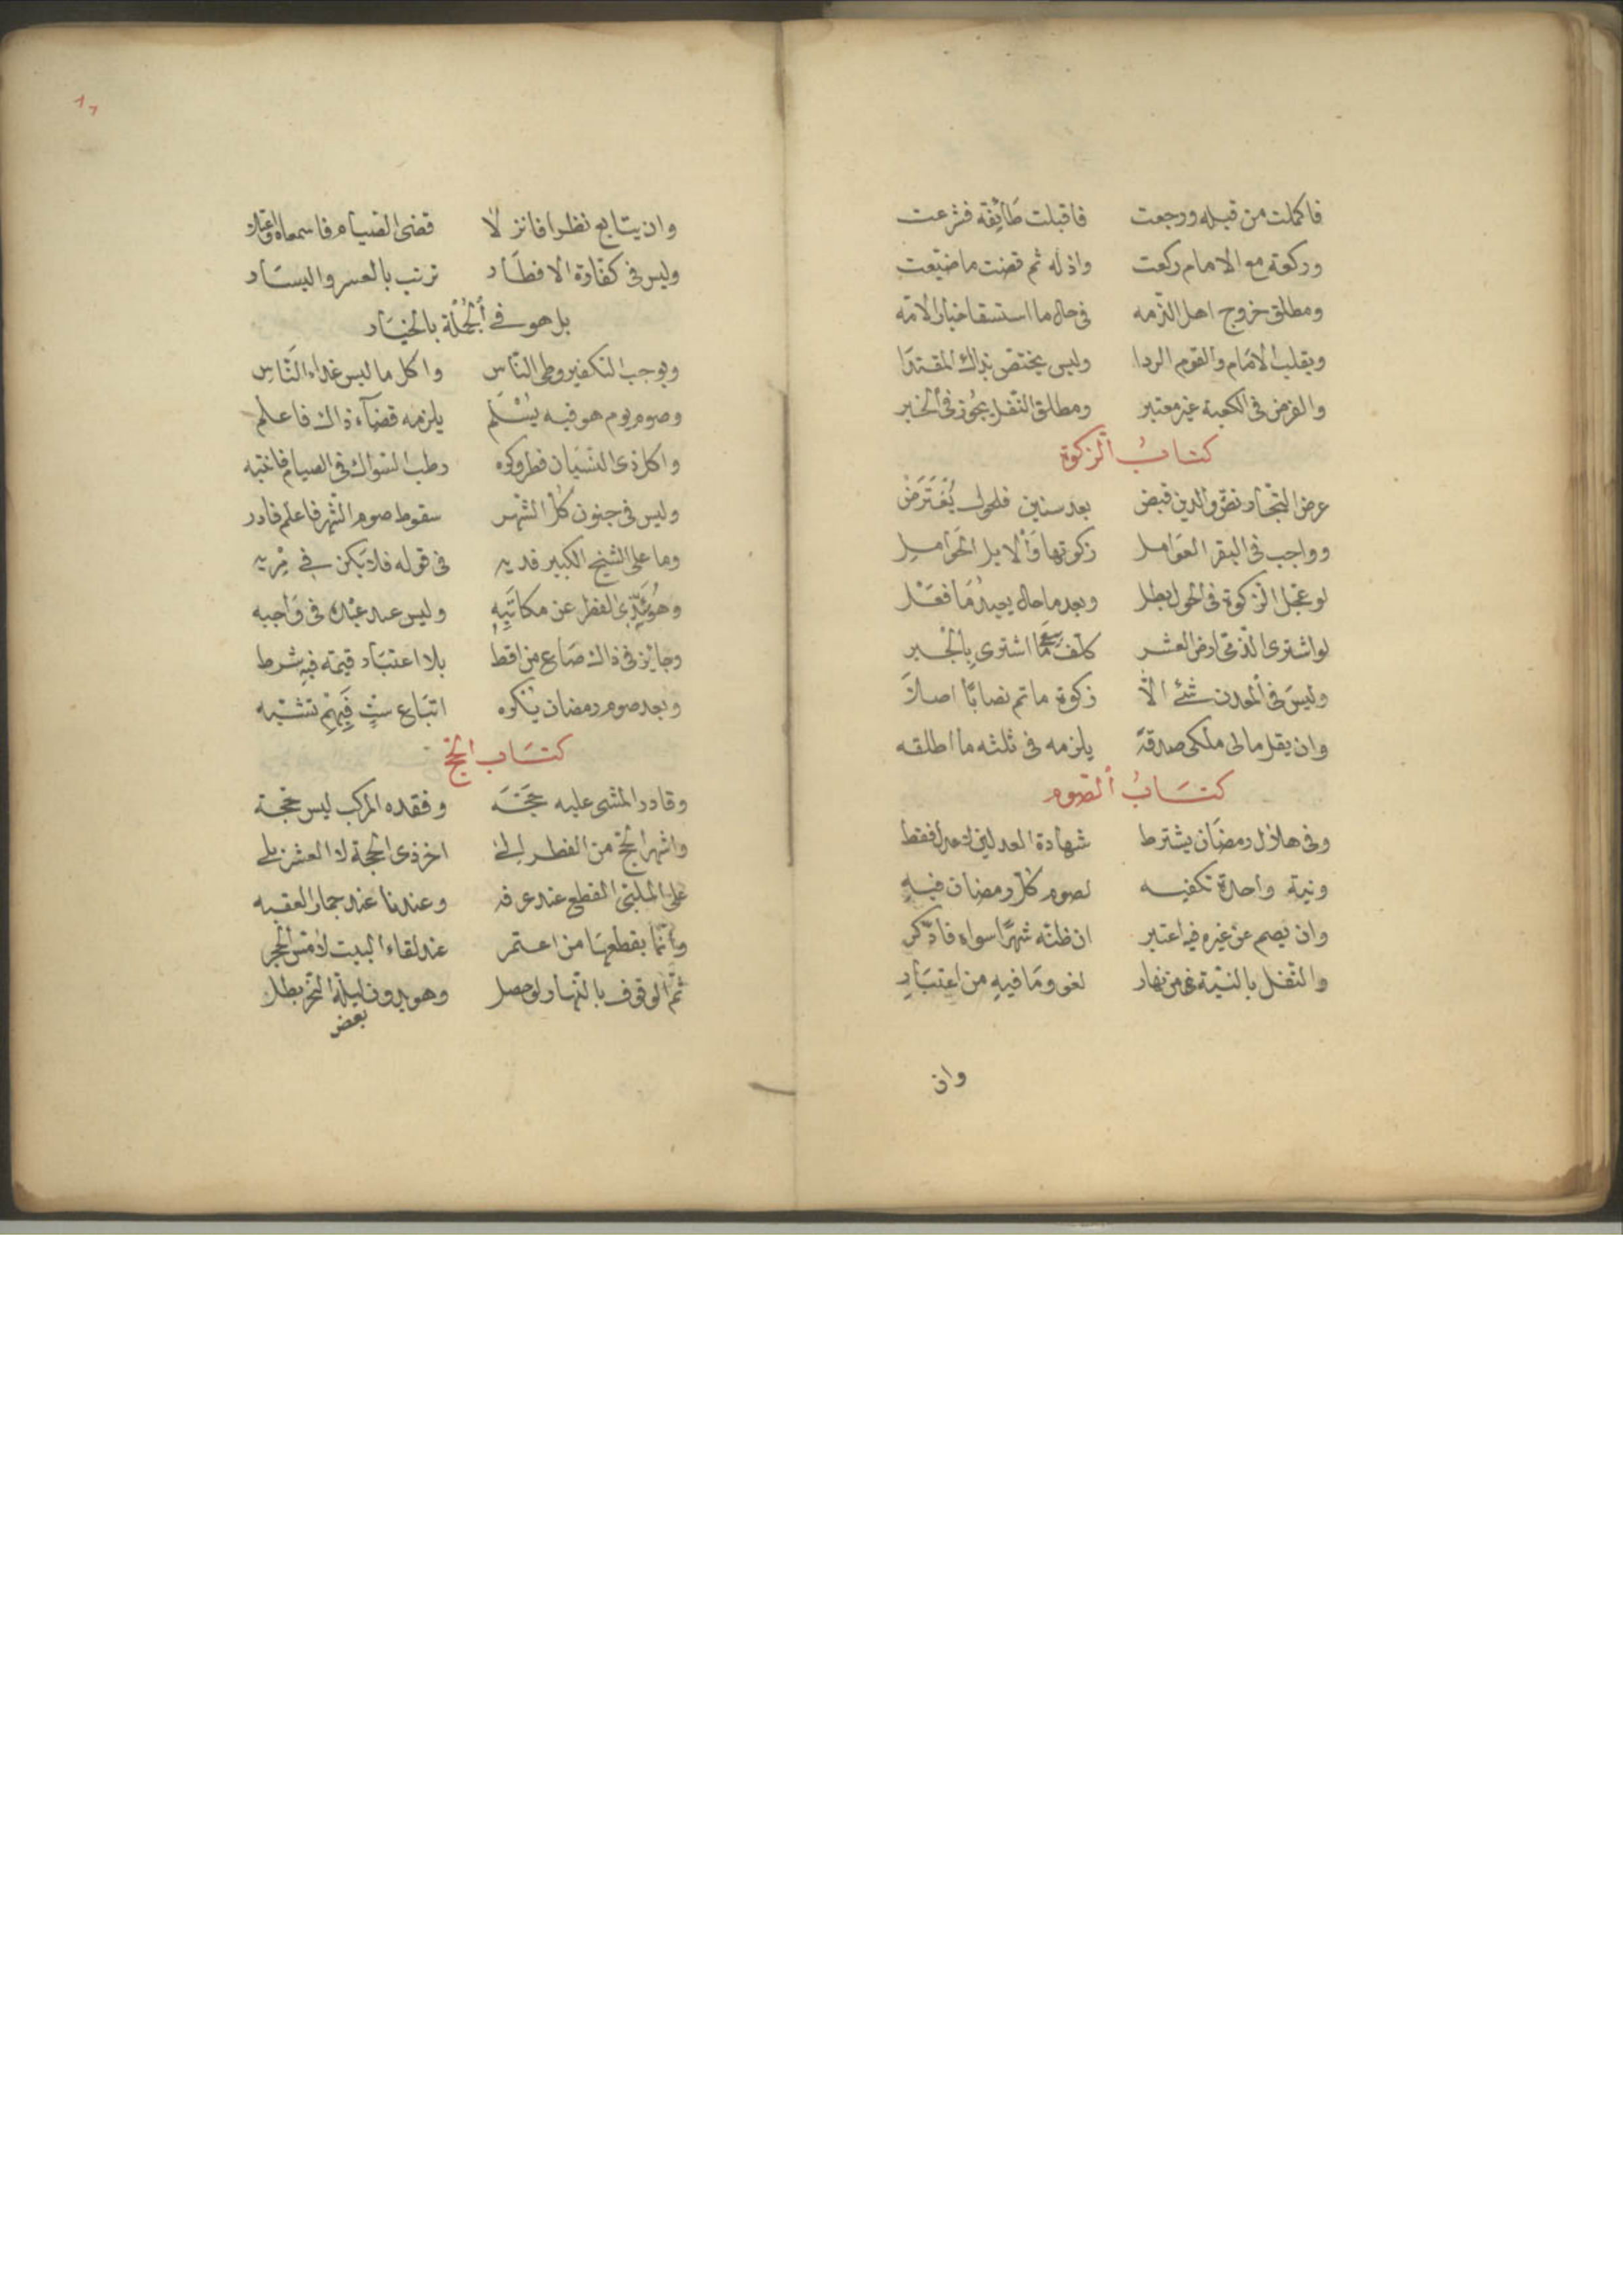 فاكملت من قبله ورجعت فاقبلت طَائِفة فشرعت
وركعة مع الامام ركعت واذ له ثم قضت ما ضيّعت
ومطلق خروج اهل الذّمه فى حال ما استسقا خيار الامّه
ويقلب الامَام والقوم الردا وليس يختصّ بذاك المقتدَا
والفرض فى الكعبة غير معتبر ومطلق النّفل يجُوز فى الخبر
كتابُ الزكوة
عرض التجّار نضّ والدين قبض بعد سنين فلحول يُفْتَرَضْ
وواجب فى البقر العوَامل زكوتها وَالابل الحَوامل
لو عجّل الزكوة فى الحول بطل وبعد ما حال يعيدُ مَا فعَل
لو اشترى الذّمّى ارض العشر كلّف بَيع مَا اشترى بالجبر
وليسَ فى المعدن شئ الاّ زكوة ما تم نصابًا اصلاَ
وان يقل مالى ملكى صدقةً يلزمه فى ثلثه ما اطلقه
كتَابُ الصّوم
وفى هلال رمضَان يشترط شهادة العدلين لا عدل فقط
ونية واحدة تكفيه لصوم كلّ رمضان فيهِ
وان يصم عن غيره فيه اعتبر ان ظنّه شهرًا سواه فادّكر
والنّفل بالنيّة من نهار لغو ومَا فيهِ من اعتبَارِ
وان
وان يتابع نظرا فانزلا قضى الصّيام فاسمعاه
وليس فى كفّارة الافطَار ترتب بالعسر واليسَار
بل هو فى الجُمْلَة بالخيَار
ويوجب التكفير وطى النّاس واكل ما ليس غذاء النَّاسِ
وصوم يوم هو فيه يُسْلَم يلزمه قضآء ذاك فاعلم
واكل ذى النسْيَان فطر وكره رطب السّواك فى الصيام فانتبه
وليس فى جنون كلّ الشّهر سقوط صوم الشّهر فاعلم فادر
وما على الشيخ الكبير فديه فى قوله فلا يَكن فى مِرْيه
وهُو يُؤدّى الفطر عن مكاتَبِهِ وليس عبد عبده فى وَاجبه
وجايز فى ذاك صَاع من اقط بلا اعتبَار قيمة فيهِ شرط
وبعد صوم رمضان يُكره اتبَاع ستٍ فَبِهِم تشتبه
كتَاب الحج
وقادر المشى عليه حَجَّة وفقده المركب ليس حجّة
واشهر الحجّ من الفطر الى اخر ذى الحجة لا العشر بلى
على الملبّى القطع عند عرفه وعندنا عند جمار العقبه
وانّما يقطعهَا من اعتمر عند لقاء البيت لا مسّ الحجر
ثمّ الوقوف بالنّهار لو حصل وهو بدون ليلة النّحر بطل
بعض